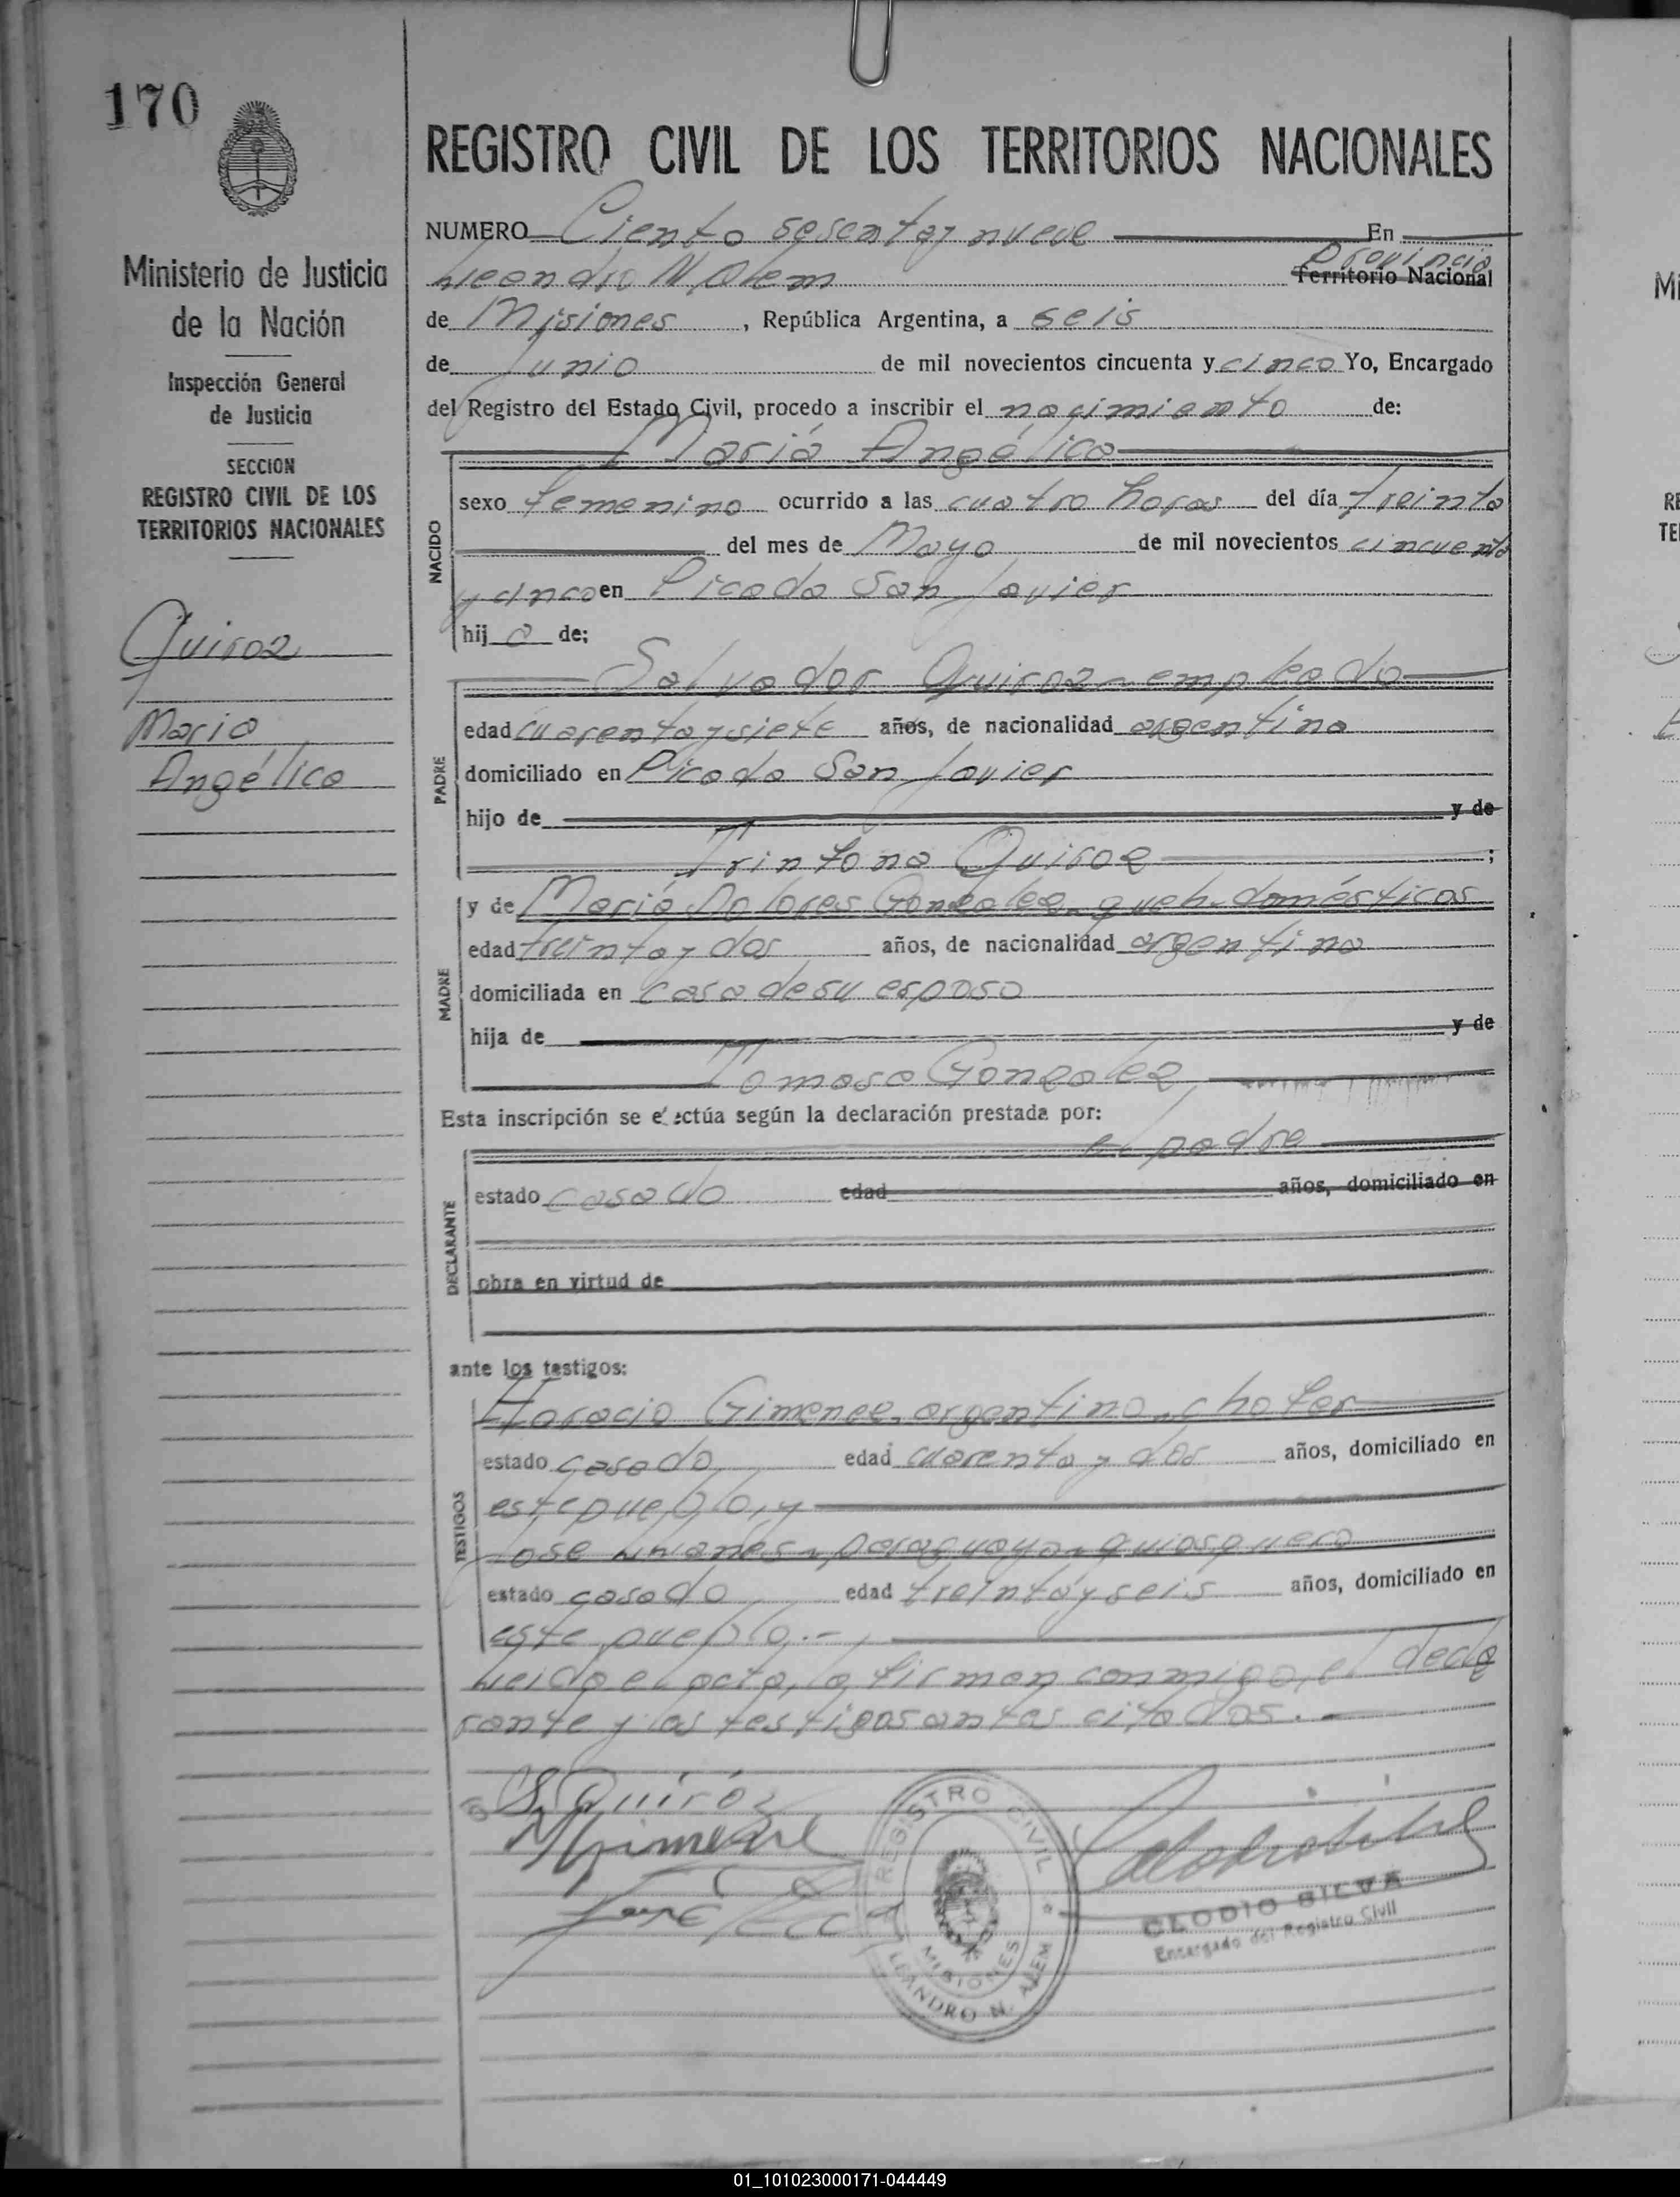 170
REGISTRO CIVIL DE LOS TERRITORIOS NACIONALES
Ministerio de Justicia
de la Nación
Inspección General
de Justicia
SECCION
REGISTRO CIVIL DE LOS
TERRITORIOS NACIONALES
Quiroz
Maria
Angélica
NUMERO Ciento sesenta y nueve En
Provincia
Leandro N Alem Territorio Nacional
de Misiones, República Argentina, a seis
de Junio de mil novecientos cincuenta y cinco Yo, Encargado
del Registro del Estado Civil, procedo a inscribir el nacimiento de:
María Angélica
NACIDO
sexo femenino ocurrido a las cuatro horas del día treinta
del mes de Mayo de mil novecientos cincuenta
y cinco en Picada San Javier
hija de:
Salvador Quiroz - empleado
PADRE
edad cuarenta y siete años, de nacionalidad argentina
domiciliado en Picada San Javier
hijo de y de
Quiroz ;
MADRE
y de María Dolores Gonzalez - queh. domésticos
edad treinta y dos años, de nacionalidad argentina
domiciliada en casa de su esposo
hija de y de
Tomasa Gonzalez
Esta inscripción se efectúa según la declaración prestada por:
el padre
DECLARANTE
estado casado edad años, domiciliado en
obra en virtud de
ante los testigos:
TESTIGOS
Horacio Gimenez, argentino, chofer
estado casado edad cuarenta y dos años, domiciliado en
este pueblo, y
Jose paraguayo, quiosquero
estado casado edad treinta y seis años, domiciliado en
este pueblo.-
Leida el acta, la firman conmigo, el decla
rante y los testigos antes citados.-
S. Quiróz
REGISTRO CIVIL
MISIONES
LEANDRO N. ALEM
CLODIO SILVA
Encargado del Registro Civil
01_101023000171-044449